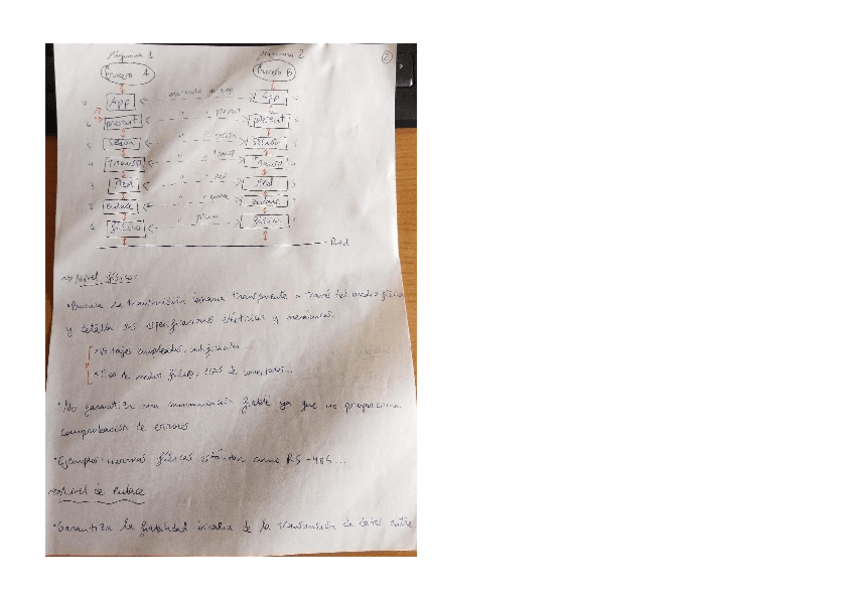 Máquina 1 Máquina 2 2
Proceso A Proceso B
App App
6 present " " present present
5 sesión " sesión sesión
4 Transp " Transp Transp
3 Red " red Red
2 enlace " enlace enlace
1 físico " físico físico
Red
→ Nivel físico:
• la transmisión binaria transparente a través del medio físico
y detalla sus especificaciones eléctricas y mecánicas.
• Voltajes empleados, codificación...
• Tipo de medios físicos, tipos de conectores...
• No garantiza una comunicación fiable ya que no proporciona
comprobación de errores
• Ejemplos: normas físicas estándar como RS-485...
→ Nivel de Enlace
• Garantiza la fiabilidad de la transmisión de datos entre